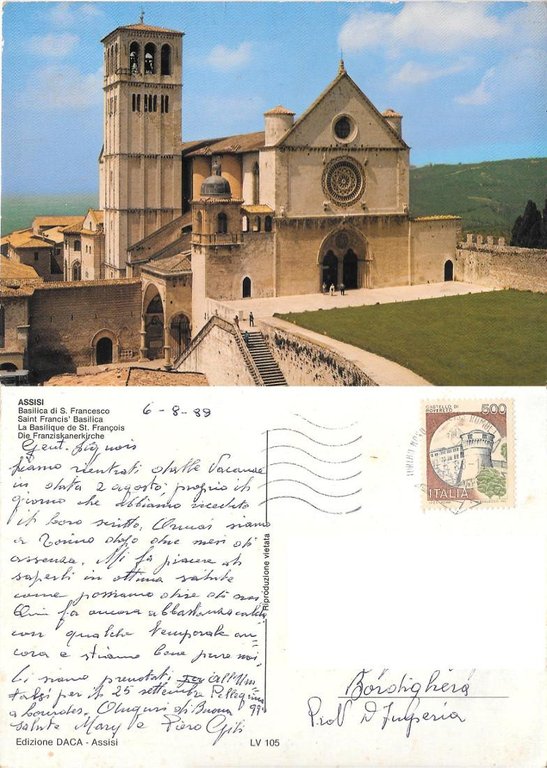 ASSISI
Basilica di S. Francesco
Saint Francis' Basilica
La Basilique de St. François
Die Franziskanerkirche
6-8-89
Gent. Signori
siamo rientrati dalle Vacanze
in data 2 agosto, proprio il
giorno che abbiamo ricevuto
il loro scritto. Ormai siamo
a Torino dopo due mesi di
assenza. Mi fa piacere di
saperli in ottima salute
come possiamo dire di noi
Qui fa ancora abbastanza caldo
con qualche temporale an
cora e stiamo bene pure noi
Ci siamo prenotati
per il 25 settembre
a Lourdes. Auguri di Buona
salute Mary e Piero
Edizione DACA - Assisi
LV 105
Riproduzione vietata
CASTELLO DI
ROVERETO
500
ITALIA
TORINO
Bordighera
Prov D'Imperia